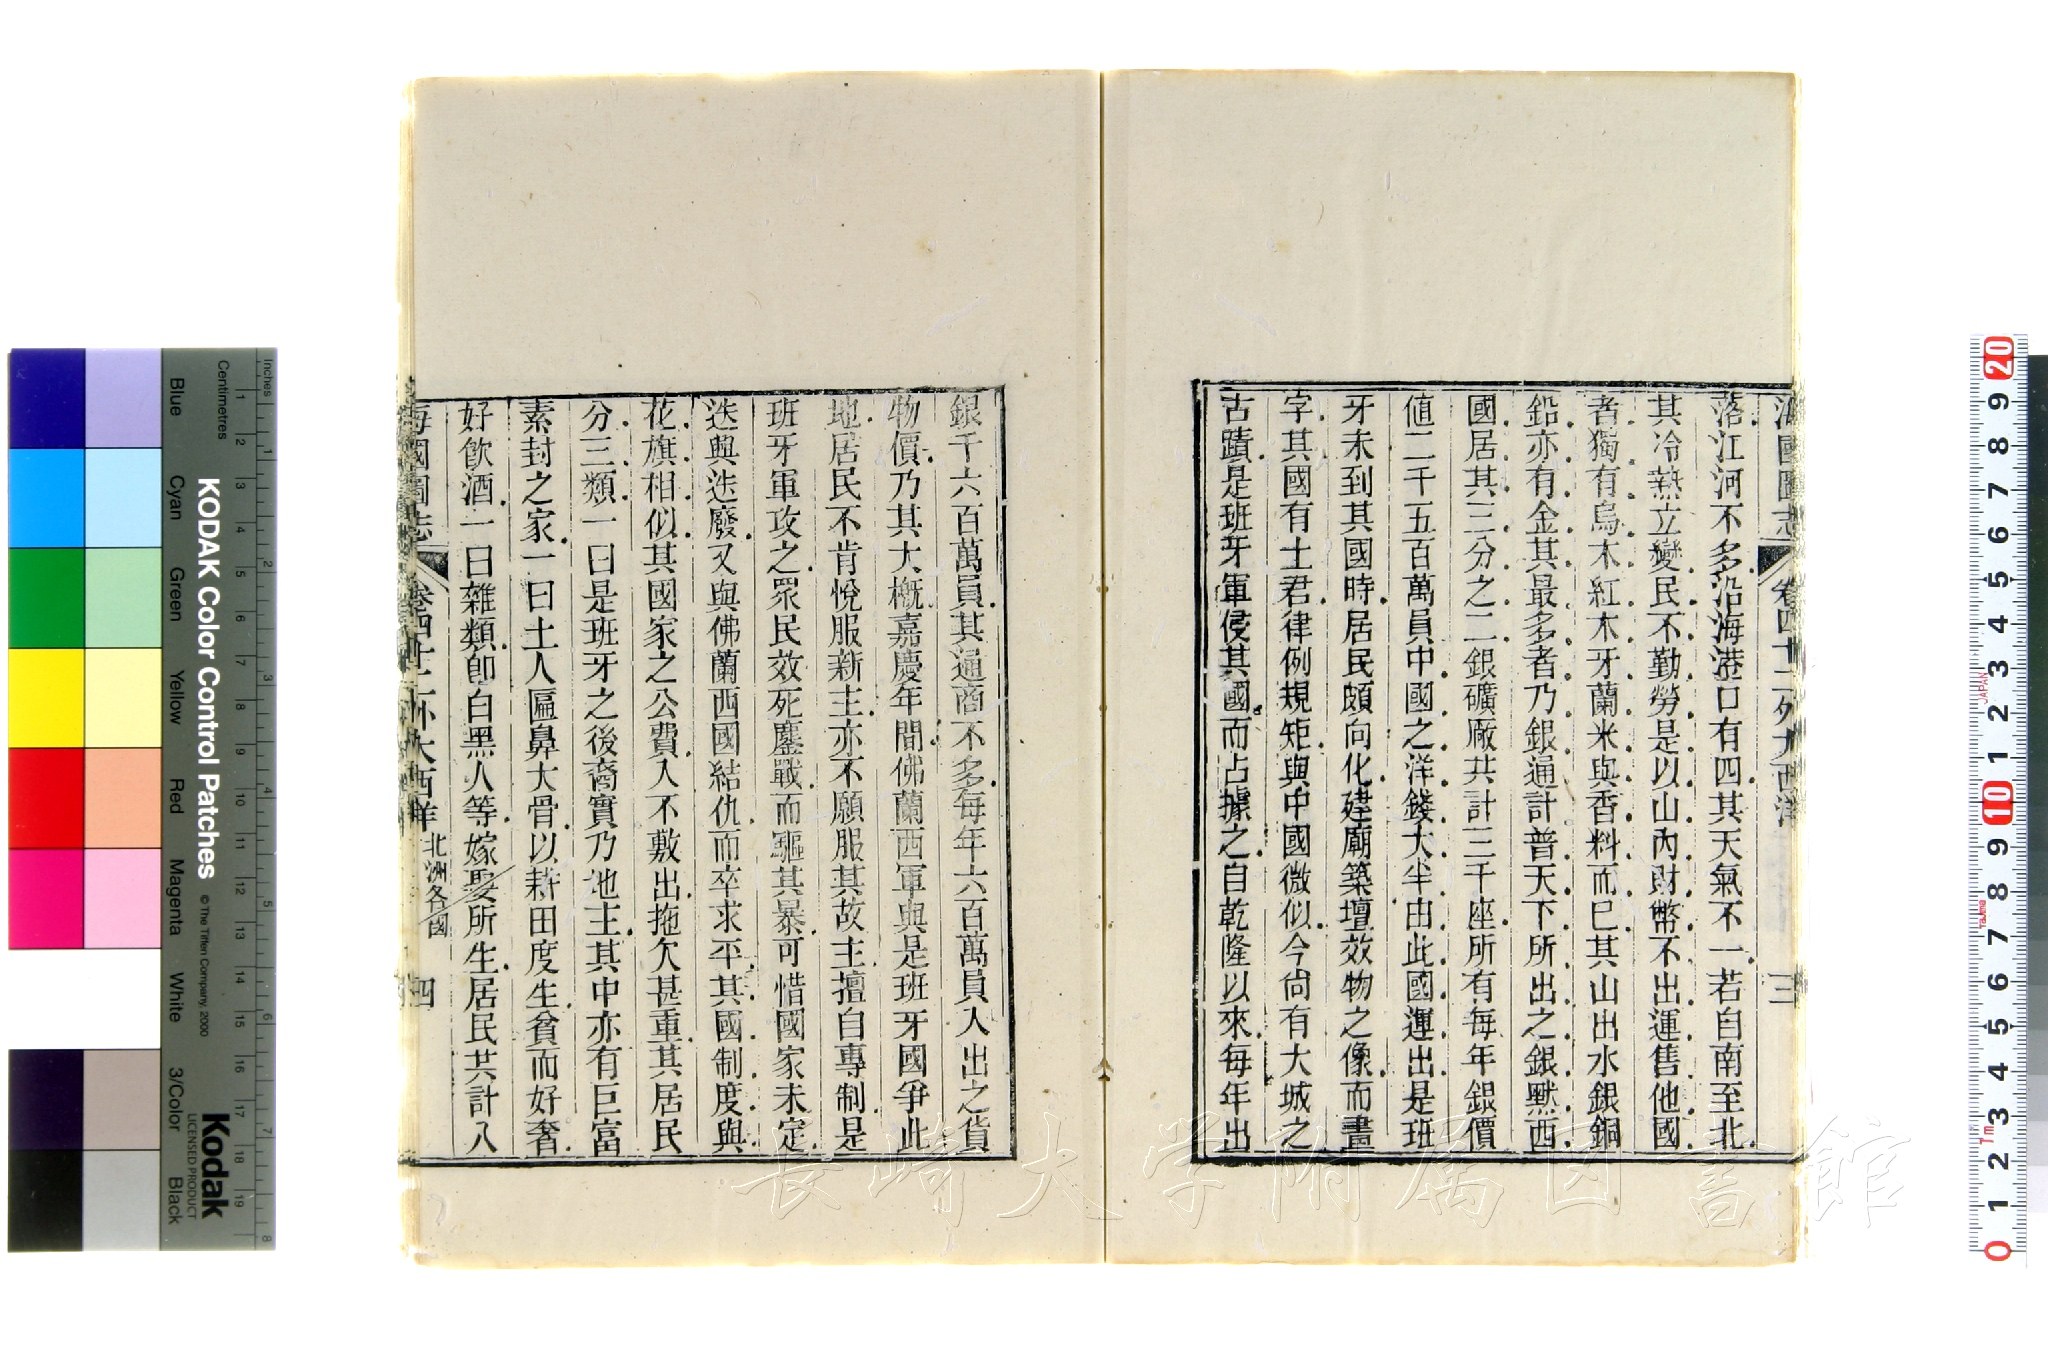 海國圖志 卷四十二 外大西洋 三
落江河不多沿海港口有四其天氣不一若自南至北
其冷熱立變民不勤勞是以山內財幣不出運售他國
者獨有烏木紅木牙蘭米與香料而已其山出水銀銅
鉛亦有金其最多者乃銀通計普天下所出之銀默西
國居其三分之二銀礦廠共計三千座所有每年銀價
値二千五百萬員中國之洋錢大半由此國運出是班
牙未到其國時居民頗向化建廟築壇效物之像而畫
字其國有土君律例規矩與中國微似今尙有大城之
古蹟是班牙軍侵其國而占據之自乾隆以來每年出
銀千六百萬員其通商不多每年六百萬員入出之貨
物價乃其大槪嘉慶年間佛蘭西軍與是班牙國爭此
地居民不肯悅服新主亦不願服其故主擅自專制是
班牙軍攻之眾民效死鏖戰而驅其暴可惜國家未定
迭興迭廢又與佛蘭西國結仇而卒求平其國制度與
花旗相似其國家之公費入不敷出拖欠甚重其居民
分三類一曰是班牙之後裔實乃地主其中亦有巨富
素封之家一曰土人匾鼻大骨以耕田度生貧而好奢
好飮酒一曰雜類卽白黑人等嫁娶所生居民共計八
海國圖志 卷四十二 外大西洋 北洲各國 四
KODAK Color Control Patches
© The Tiffen Company, 2000
Kodak
LICENSED PRODUCT
Inches
Centimetres
Blue
Cyan
Green
Yellow
Red
Magenta
White
3/Color
Black
1 2 3 4 5 6 7 8
1 2 3 4 5 6 7 8 9 10 11 12 13 14 15 16 17 18 19
20 9 8 7 6 5 4 3 2 1 10 9 8 7 6 5 4 3 2 1 0
JAPAN
長崎大学附属図書館